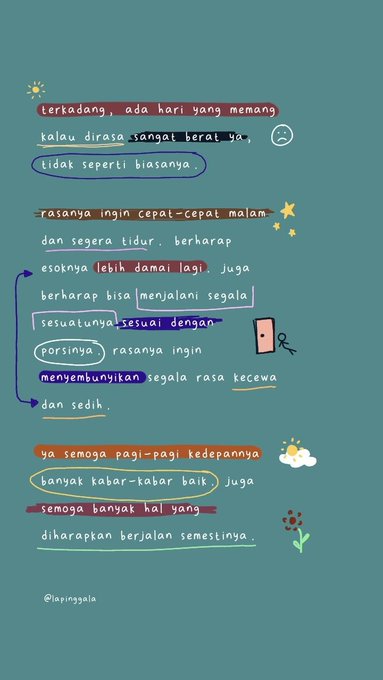 terkadang, ada hari yang memang
kalau dirasa sangat berat ya,
tidak seperti biasanya.
rasanya ingin cepat-cepat malam
dan segera tidur. berharap
esoknya lebih damai lagi. juga
berharap bisa menjalani segala
sesuatunya sesuai dengan
porsinya. rasanya ingin
menyembunyikan segala rasa kecewa
dan sedih.
ya semoga pagi-pagi kedepannya
banyak kabar-kabar baik. juga
semoga banyak hal yang
diharapkan berjalan semestinya.
@lapinggala